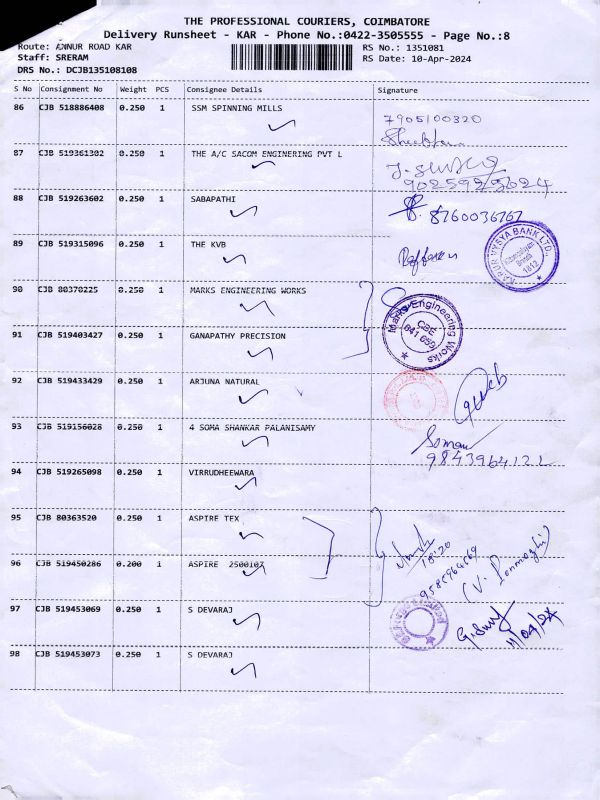 THE PROFESSIONAL COURIERS, COIMBATORE
Delivery Runsheet - KAR - Phone No.:0422-3505555 - Page No.:8
Route: ANNUR ROAD KAR RS No.: 1351081
Staff: SRERAM RS Date: 10-Apr-2024
DRS No.: DCJB135108108
S No Consignment No Weight PCS Consignee Details Signature
86 CJB 518886408 0.250 1 SSM SPINNING MILLS
7905100320
87 CJB 519361302 0.250 1 THE A/C SACOM ENGINEERING PVT L
88 CJB 519263602 0.250 1 SABAPATHI
8760036767
89 CJB 519315096 0.250 1 THE KVB
KARUR VYSYA BANK LTD.
90 CJB 80370225 0.250 1 MARKS ENGINEERING WORKS
Marks Engineering Works
CBE
641 659
91 CJB 519403427 0.250 1 GANAPATHY PRECISION
92 CJB 519433429 0.250 1 ARJUNA NATURAL
93 CJB 519156028 0.250 1 4 SOMA SHANKAR PALANISAMY
94 CJB 519265098 0.250 1 VIRRUDHEEWARA
95 CJB 80363520 0.250 1 ASPIRE TEX
96 CJB 519450286 0.200 1 ASPIRE 2500107
18:20
97 CJB 519453069 0.250 1 S DEVARAJ
11/04/24
98 CJB 519453073 0.250 1 S DEVARAJ